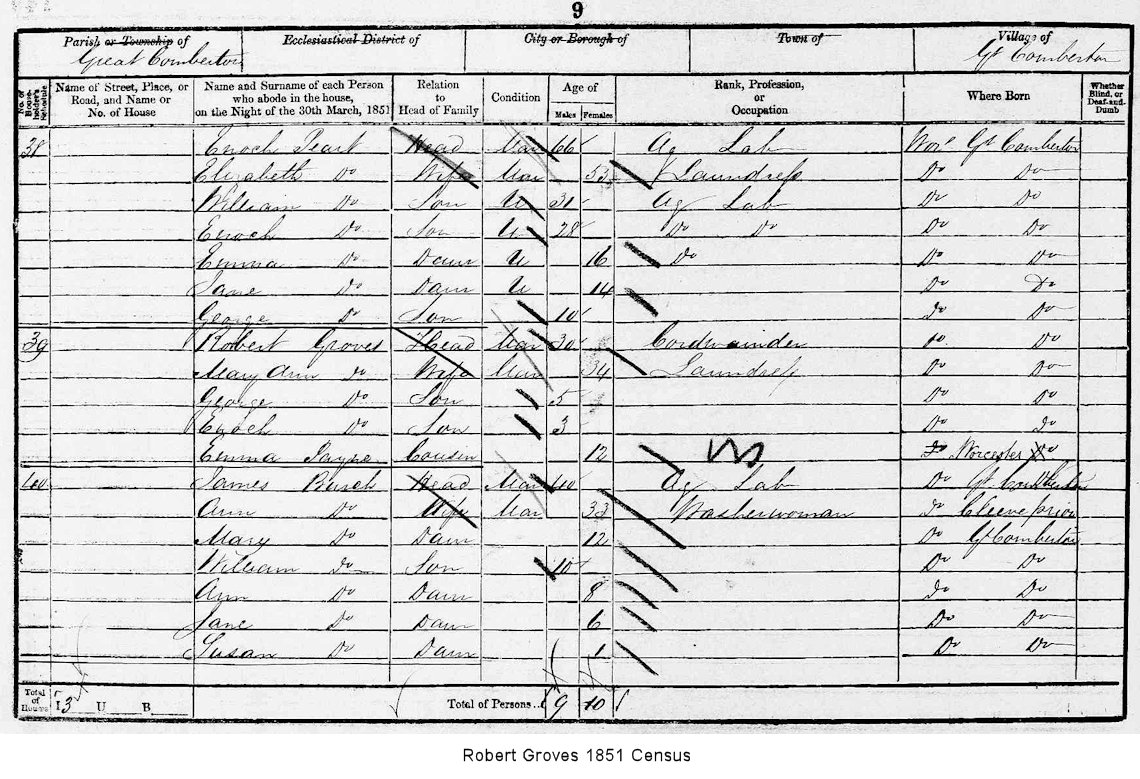 9
Parish or Township of Ecclesiastical District of City or Borough of Town of Village of
Great Comberton Gt Comberton
No. of Householder's Schedule Name of Street, Place, or Road, and Name or No. of House Name and Surname of each Person who abode in the house, on the Night of the 30th March, 1851 Relation to Head of Family Condition Age of Males Females Rank, Profession, or Occupation Where Born Whether Blind, or Deaf-and-Dumb
38 Enoch Peart Head Mar 66 Ag Lab Wor Gt Comberton
Elizabeth Do Wife Mar 53 Laundress Do Do
William Do Son U 31 Ag Lab Do Do
Enoch Do Son U 28 Do Do Do Do
Emma Do Daur U 16 Do Do Do
Jane Do Daur U 14 Do Do
George Do Son 10 do Do
39 Robert Groves Head Mar 30 Cordwainder Do Do
Mary Ann do Wife Mar 34 Laundress Do Do
George Do Son 5 Do Do
Enoch Do Son 3 Do do
Emma Payne Cousin 12 do Worcester Do
40 James Head Mar 40 Ag Lab Do Gt Comberton
Ann Do Wife Mar 33 Washerwoman do Cleeve prior
Mary Do Daur 12 Do Gt Comberton
William do Son 10 Do Do
Ann Do Daur 8 do Do
Jane Do Daur 6 Do Do
Susan Do Daur 1 Do Do
Total of Houses I 3 U B Total of Persons 9 10
Robert Groves 1851 Census